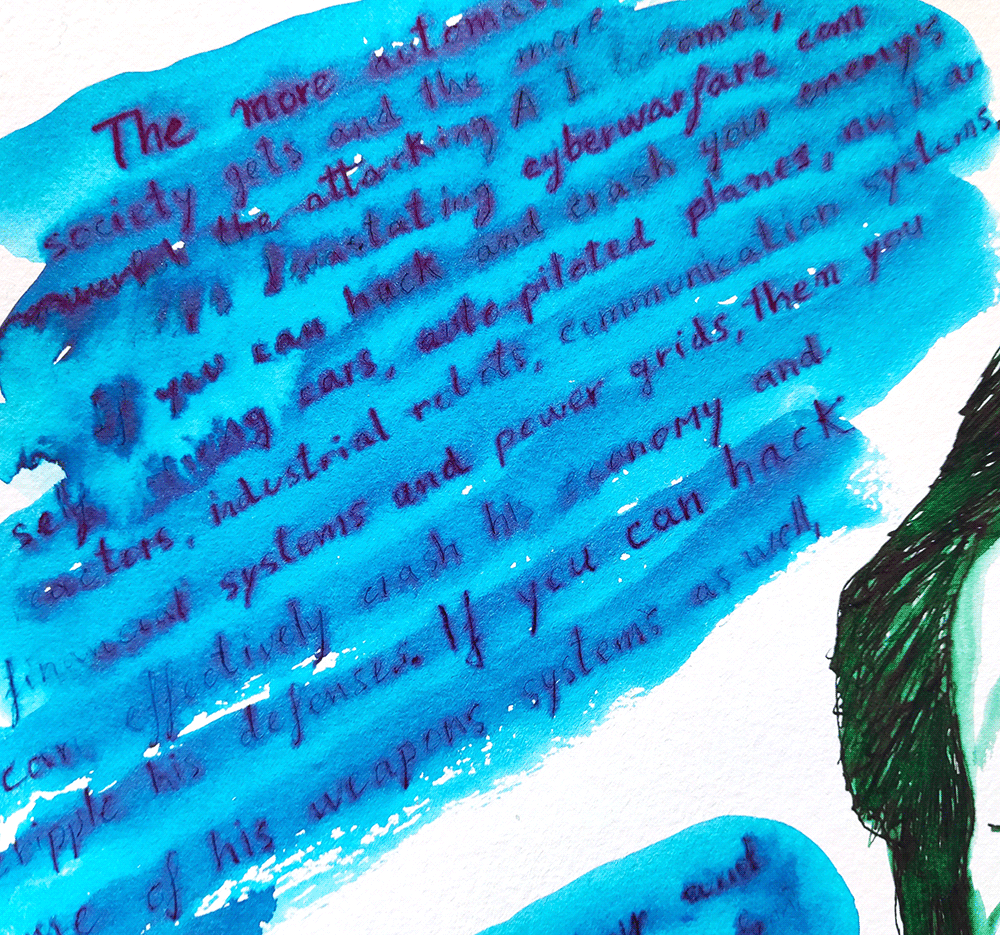 The more automa
society gets and the more
powerful the attacking A I becomes,
devastating cyberwarfare can
If you can hack and crash your enemy's
self driving cars, auto-piloted planes, nuclear
reactors, industrial robots, communication systems,
financial systems and power grids, then you
can effectively crash his economy and
cripple his defenses. If you can hack
of his weapons systems as well,
and